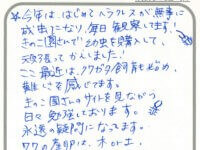 ☆今年は、はじめてヘラクレスが無事に
成虫になり、毎日観察してます!
きのこ園さんで幼虫を購入して、
頑張ってかいました!
ここ最近は、クワガタ飼育も始め
難しさを感じてます。
きのこ園さんのサイトを見ながら
日々勉強しております。
永遠の疑問になってます。
ワタの産卵は、木 or 土